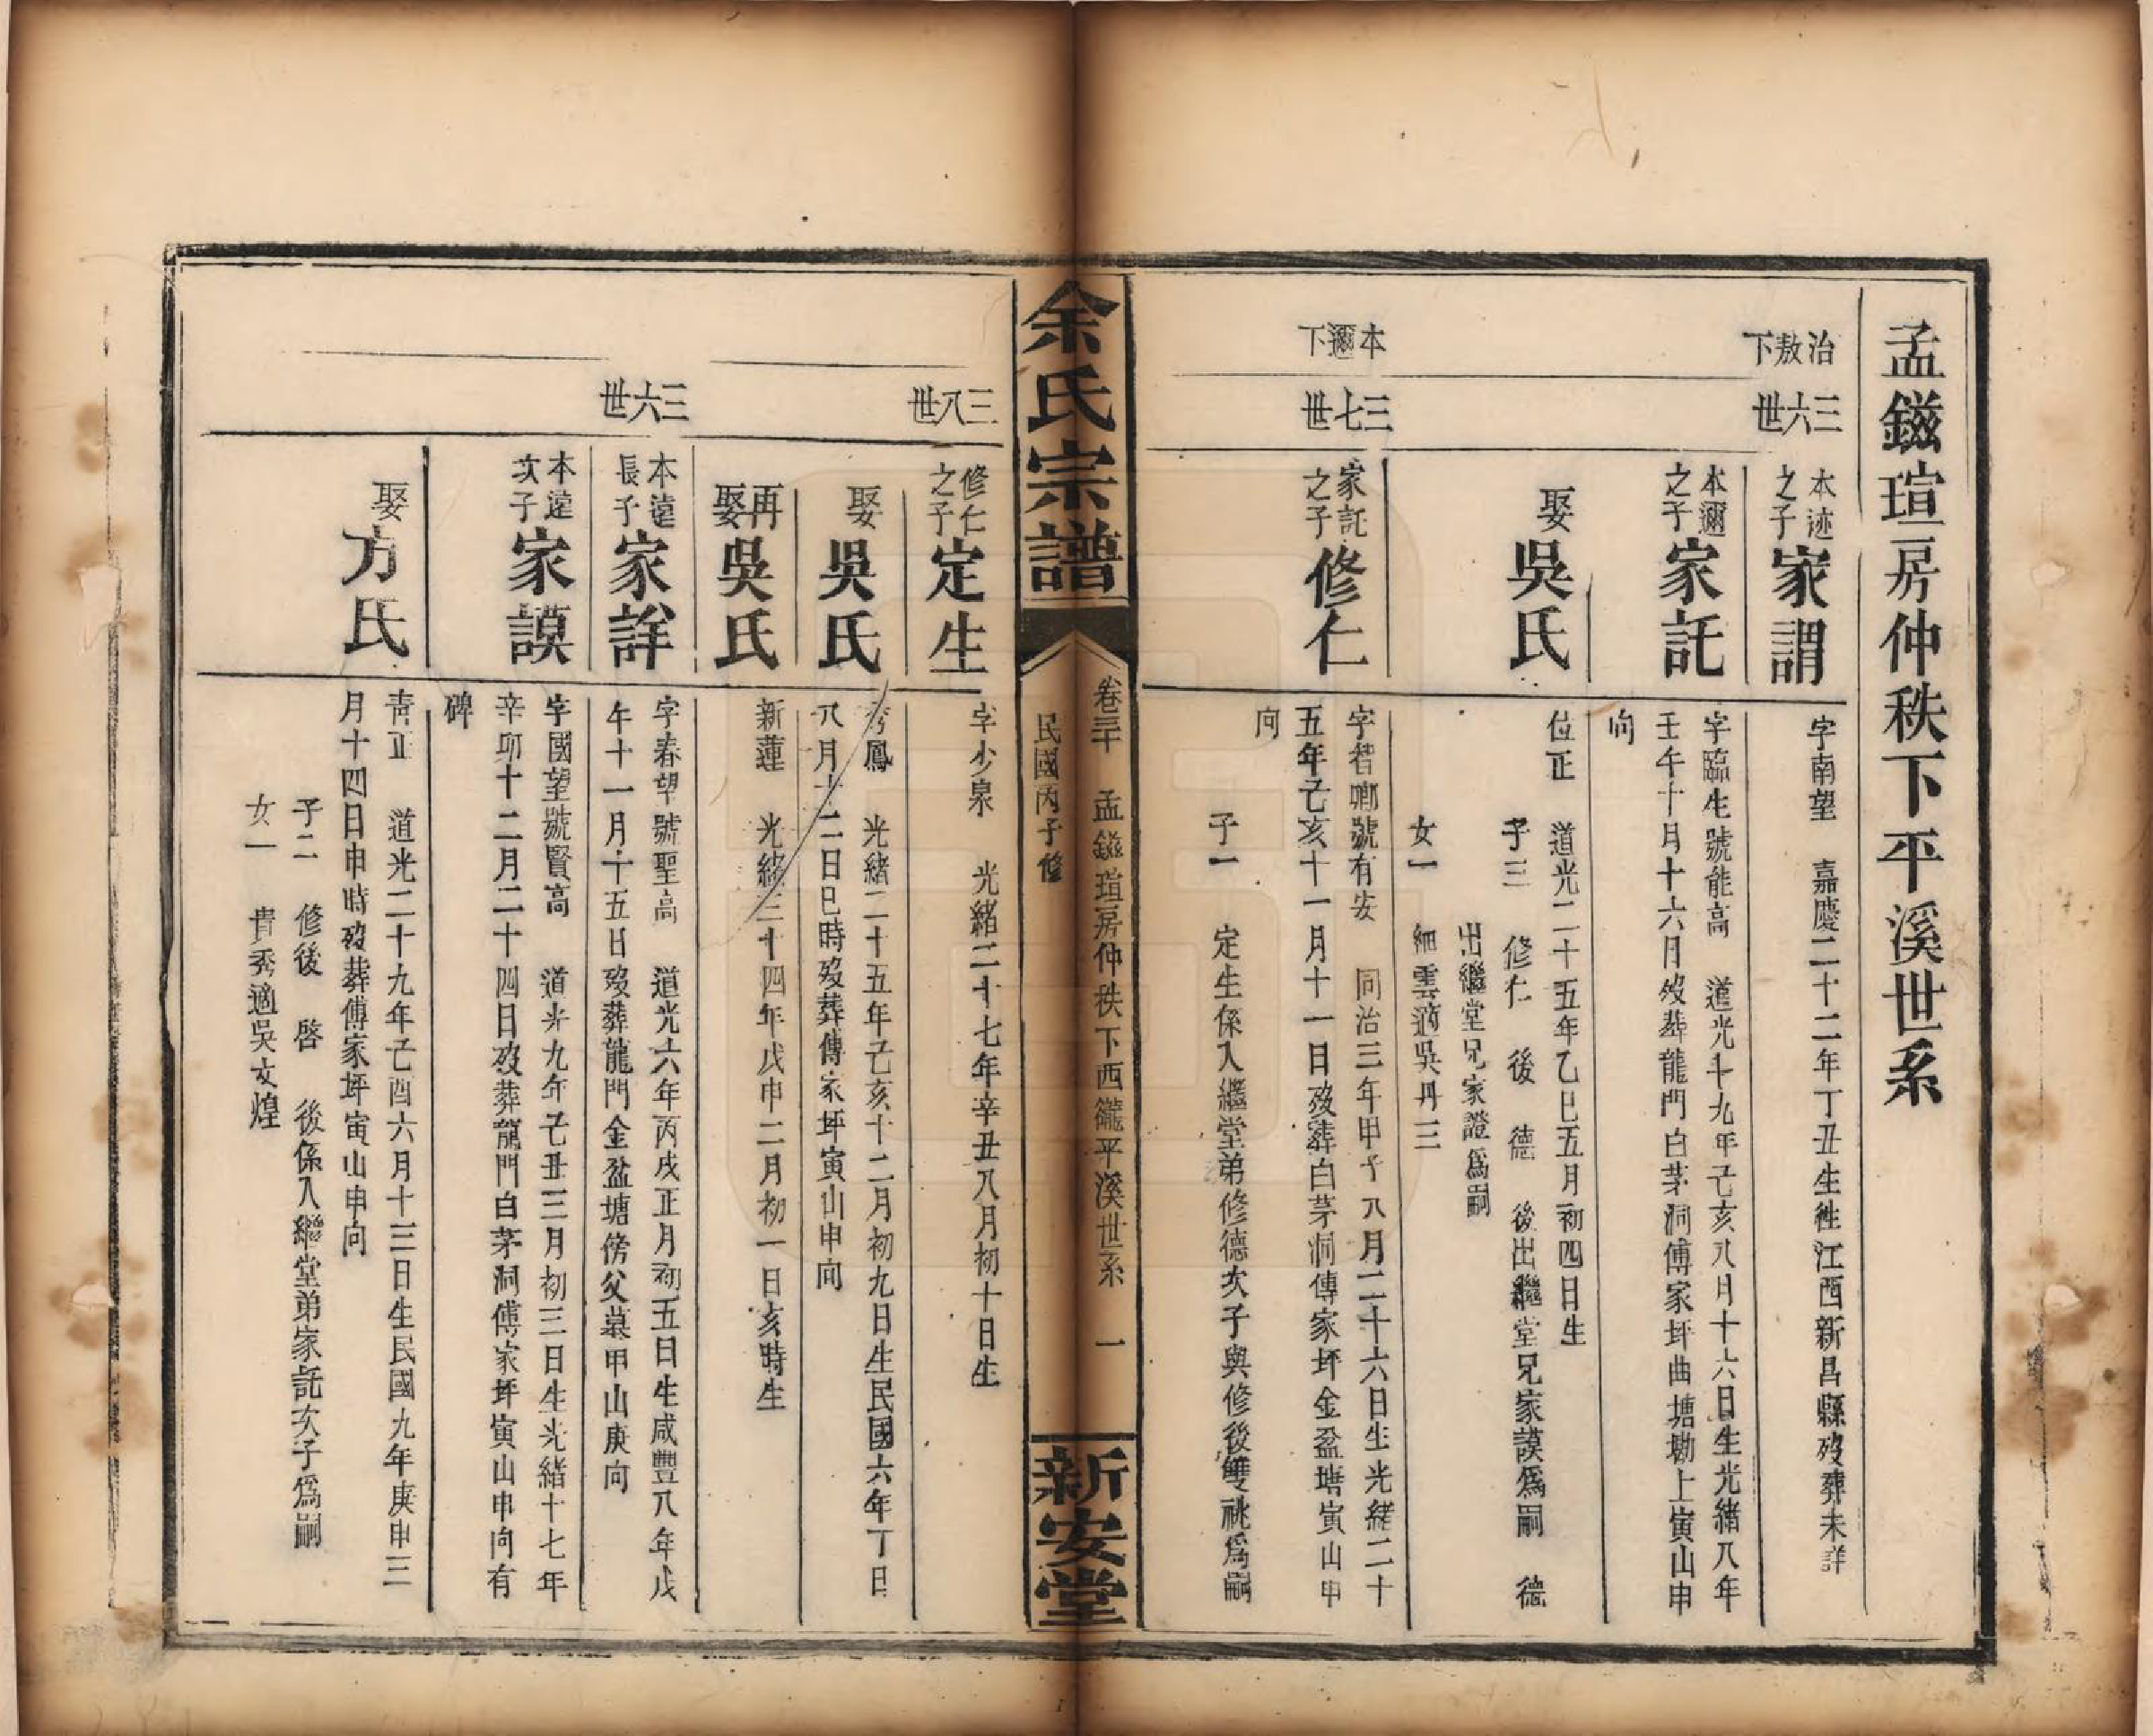 孟鎡瑄房仲秩下平溪世系
治敖下
三六世
本迹之子
家謂
字南望 嘉慶二十二年丁丑生徃江西新昌縣歿葬未詳
本邇之子
家託
字臨生號能高 道光十九年己亥八月十六日生光緒八年
壬午十月十六月歿葬龍門白茅洞傅家坪曲塘塝上寅山申
向
娶
吳氏
位正 道光二十五年乙巳五月初四日生
子三 修仁 後 德 後出繼堂兄家謨爲嗣 德
出繼堂兄家證爲嗣
女一 細雲適吳丹三
本邇下
三七世
家託之子
修仁
字智卿號有安 同治三年甲子八月二十六日生光緒二十
五年己亥十一月十一日歿葬白茅洞傅家坪金盆塘寅山申
向
子一 定生係入繼堂弟修德次子與修後雙祧爲嗣
余氏宗譜
卷三十 孟鎡瑄房仲秩下西衢平溪世系 一
民國丙子修
新安堂
三八世
修仁之子
定生
字少泉 光緒二十七年辛丑八月初十日生
娶
吳氏
秀鳳 光緒二十五年己亥十二月初九日生民國六年丁巳
八月十二日巳時歿葬傅家坪寅山申向
再娶
吳氏
新蓮 光緒三十四年戊申二月初一日亥時生
三六世
本遠長子
家詳
字春望號聖高 道光六年丙戌正月初五日生咸豐八年戊
午十一月十五日歿葬龍門金盆塘傍父墓甲山庚向
本遠次子
家謨
字國望號賢高 道光九年己丑三月初三日生光緒十七年
辛卯十二月二十四日歿葬龍門白茅洞傅家坪寅山申向有
碑
娶
方氏
靑正 道光二十九年己酉六月十三日生民國九年庚申三
月十四日申時歿葬傅家坪寅山申向
子二 修後 啓 後係入繼堂弟家託次子爲嗣
女一 貴秀適吳文煌